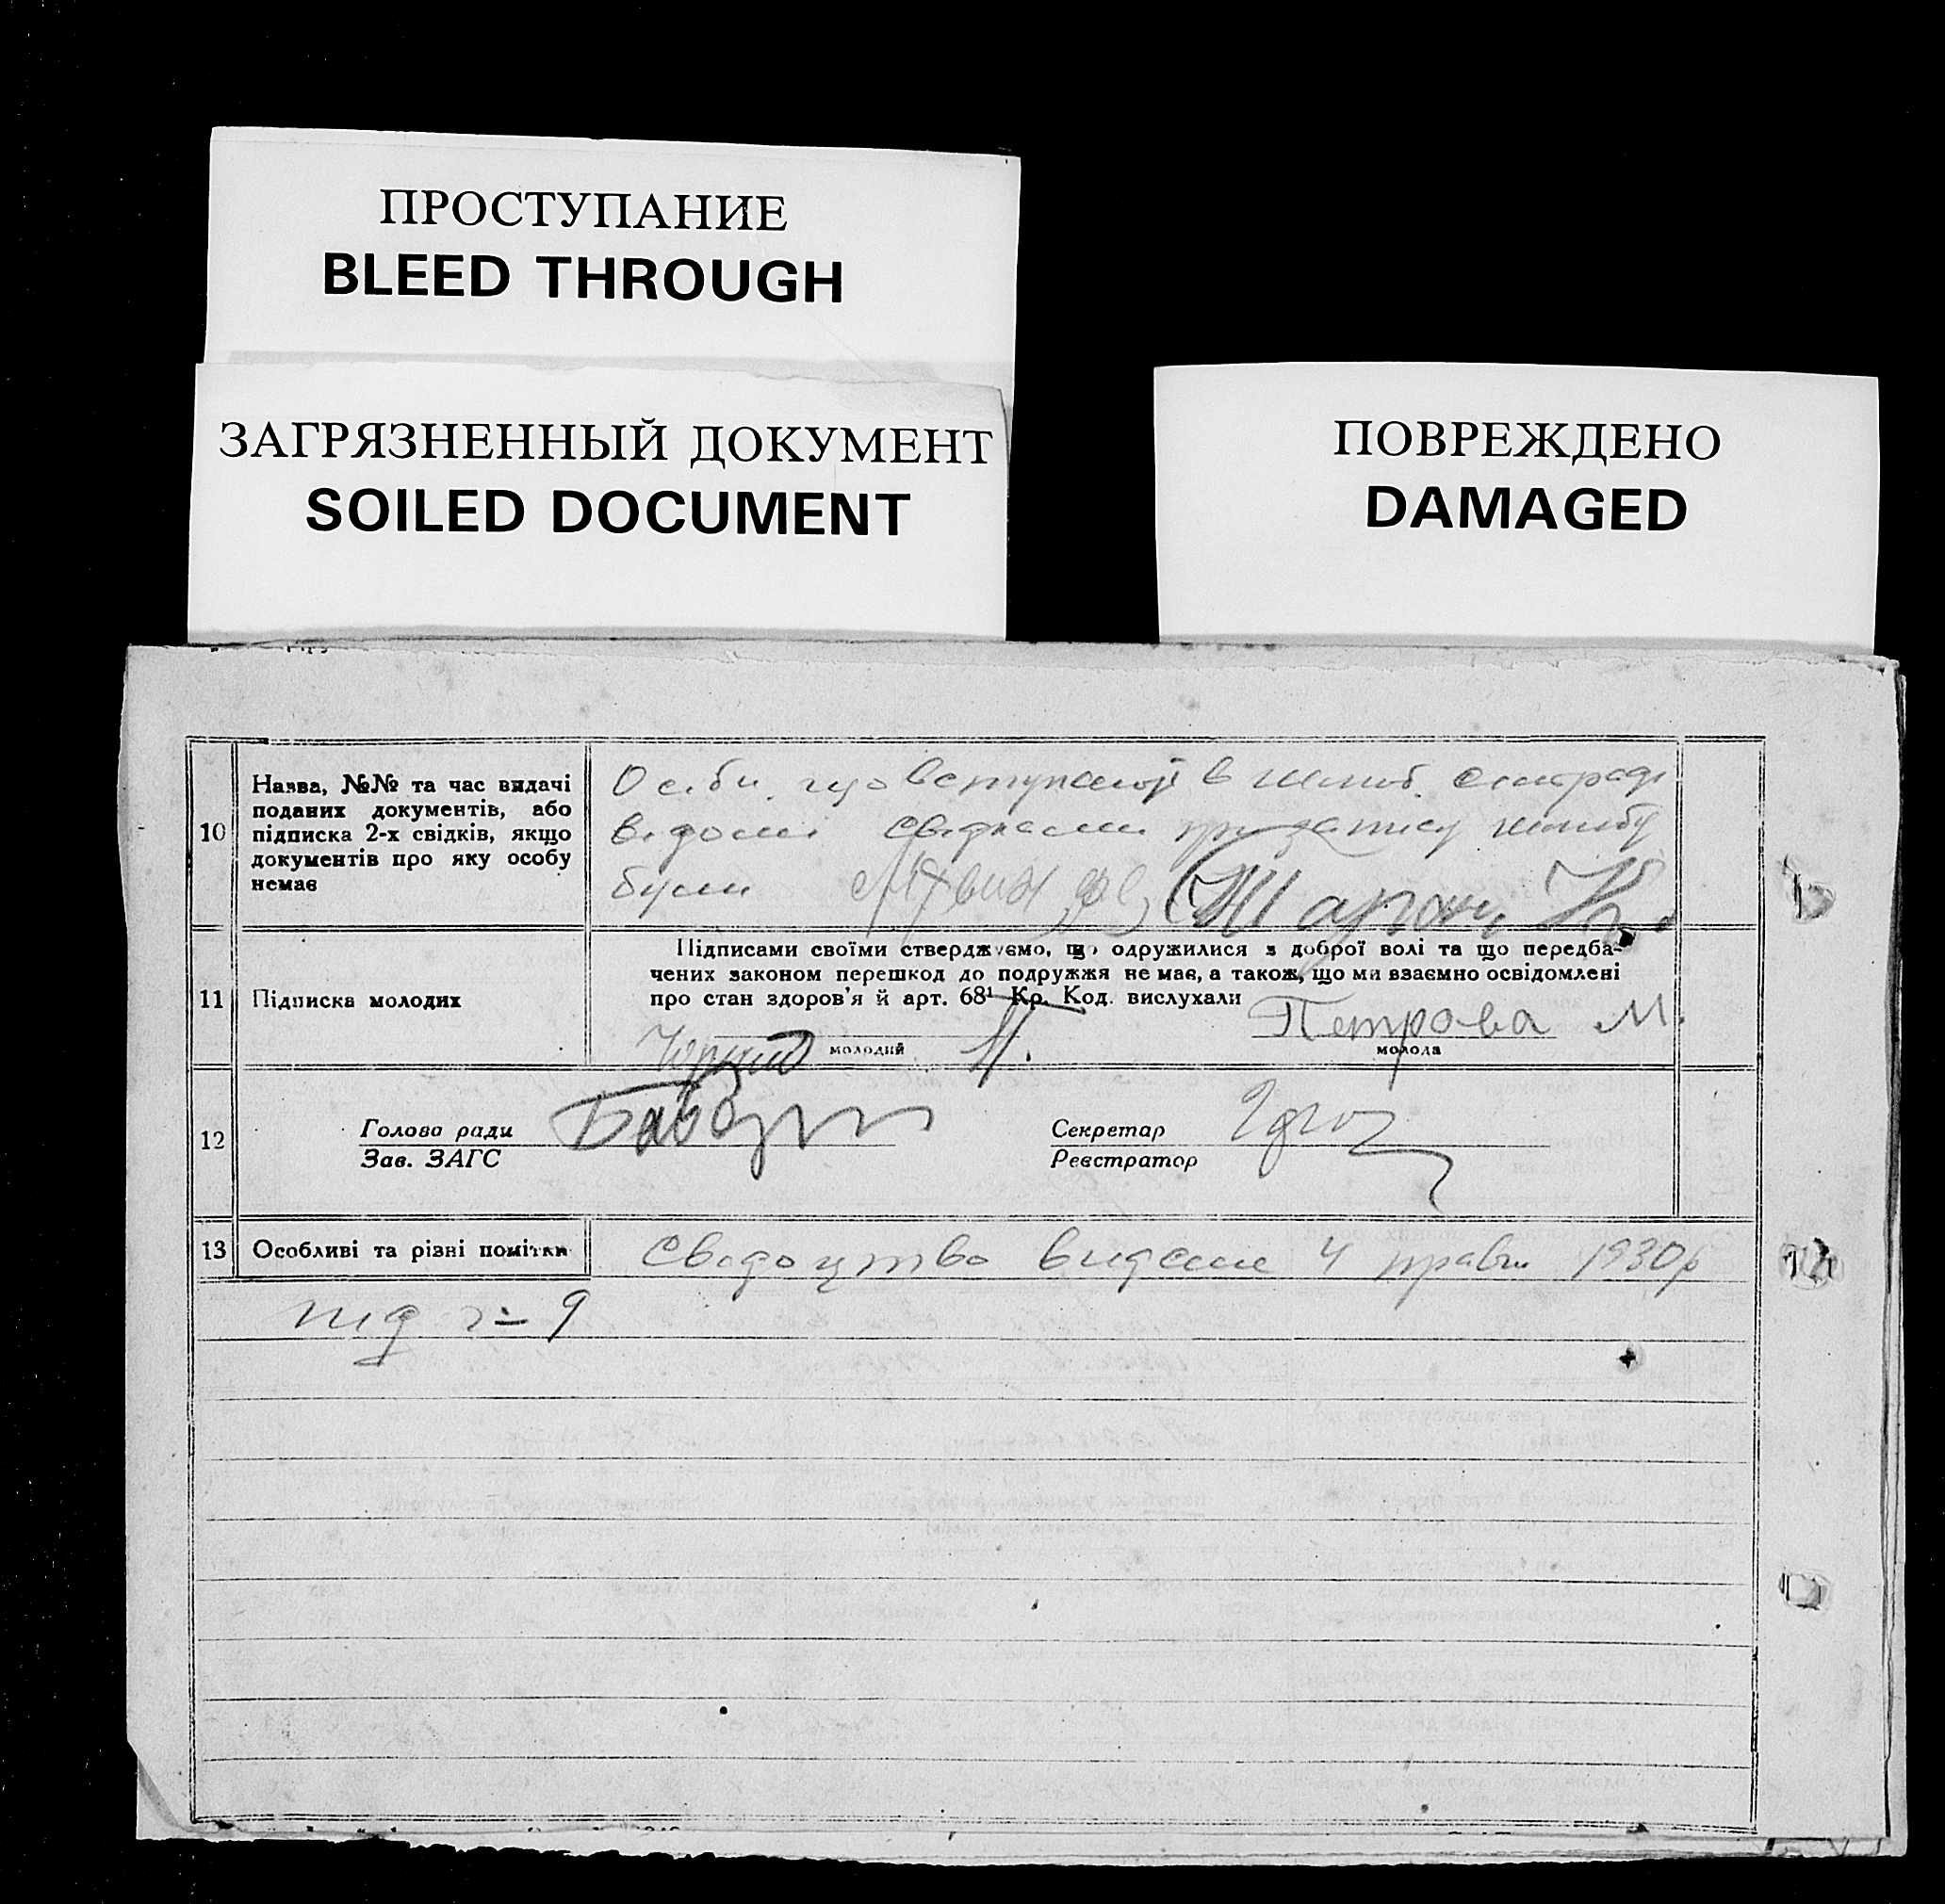 ПРОСТУПАНИЕ
BLEED THROUGH
ЗАГРЯЗНЕННЫЙ ДОКУМЕНТ
SOILED DOCUMENT
ПОВРЕЖДЕНО
DAMAGED
10
Назва, №№ та час видачі
поданих документів, або
підписка 2-х свідків, якщо
документів про яку особу
немає
Особи, що вступают в шлюб сільраді
відомі свідками при запису шлюбу
були
11
Підписка молодих
Підписами своїми стверджуємо, що одружилися з доброї волі та що передба-
чених законом перешкод до подружжя немає, а також, що ми взаємно освідомлені
про стан здоров'я й арт. 68¹ Кр. Код. вислухали
Петрова М.
молодий
молода
12
Голова ради
Зав. ЗАГС
Секретар
Реєстратор
13
Особливі та різні помітки
Свідоцтво видане 4 1930р
під 9